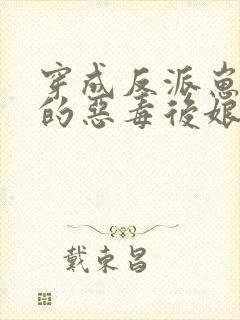 穿成反派崽
的惡毒後娘
戴東昌